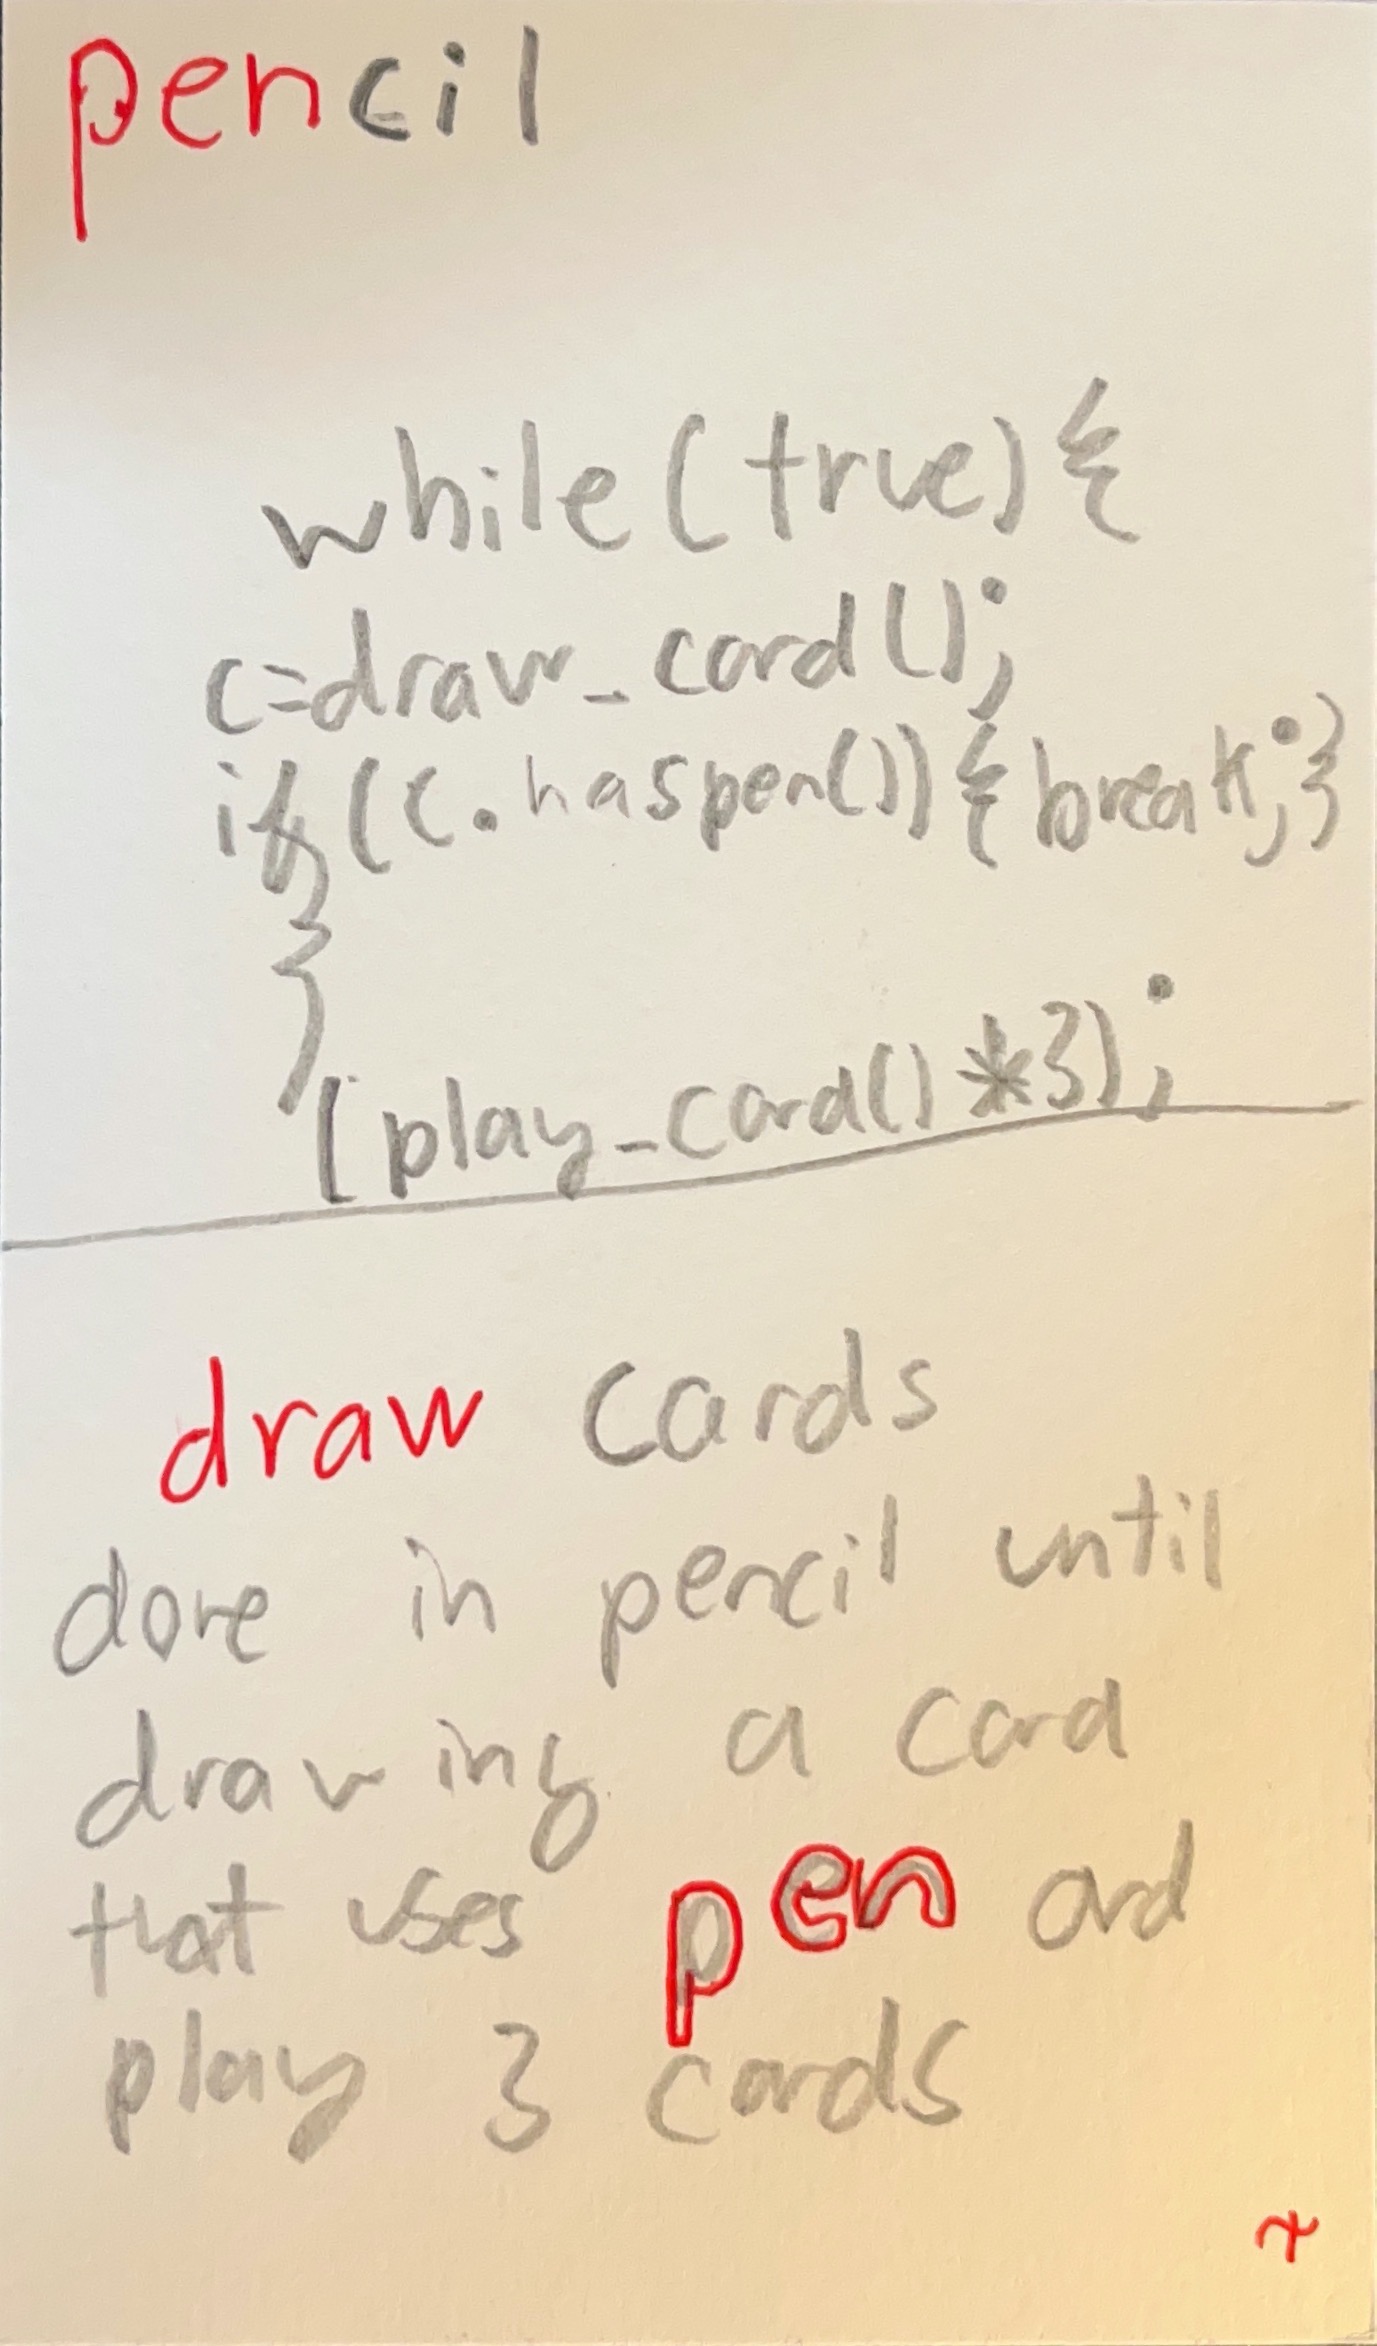 pencil
while(true){
c=draw_card();
if(c.haspen()){break;}
}
(play_card()*3);
draw cards
done in pencil until
drawing a card
that uses pen and
play 3 cards